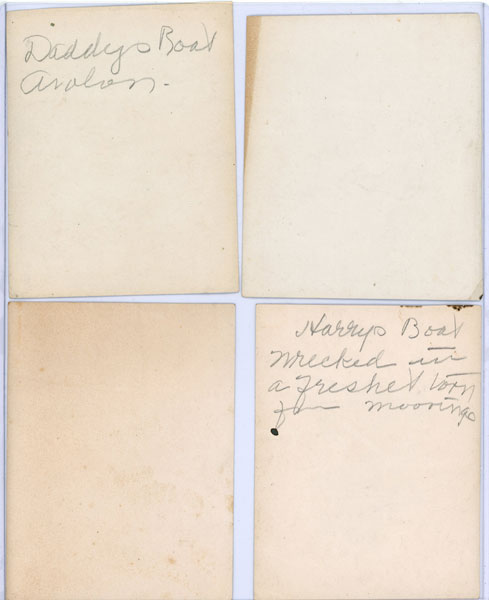 Daddys Boat
Avalon.
Harrys Boat
wrecked in
a freshet torn
from moorings